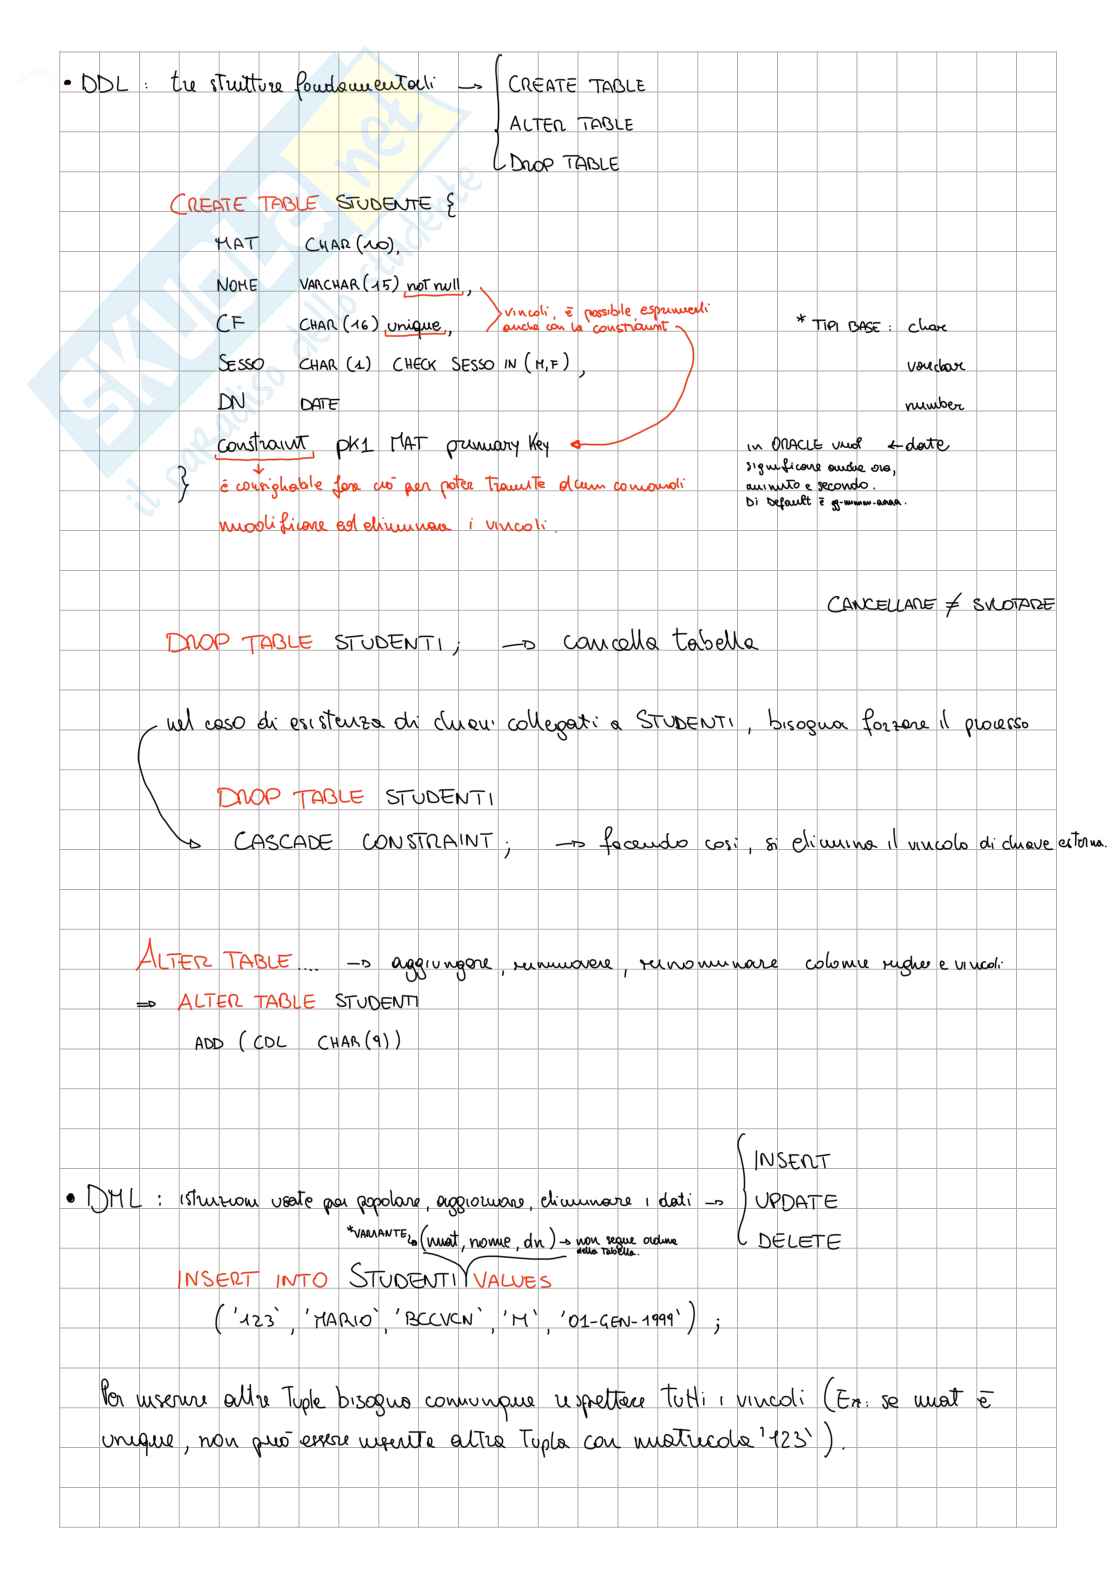 • DDL : tre strutture fondamentali → CREATE TABLE
ALTER TABLE
DROP TABLE
CREATE TABLE STUDENTE {
MAT CHAR (10),
NOME VARCHAR (15) not null,
CF CHAR (16) unique,
vincoli, è possibile esprimerli
anche con la constraint
SESSO CHAR (1) CHECK SESSO IN (M,F),
DN DATE
constraint pk1 MAT primary key
}
è consigliabile fare ciò per poter tramite alcuni comandi
modificare ed eliminare i vincoli.
* TIPI BASE : char
varchar
number
in ORACLE vuol ← date
significare anche ora,
minuto e secondo.
Di Default è gg-mmm-aaaa.
CANCELLARE ≠ SVUOTARE
DROP TABLE STUDENTI ; → cancella tabella
nel caso di esistenza di chiavi collegati a STUDENTI, bisogna forzare il processo
DROP TABLE STUDENTI
CASCADE CONSTRAINT ; → facendo così, si elimina il vincolo di chiave esterna.
ALTER TABLE.... → aggiungere, rimuovere, rinominare colonne righe e vincoli
⇒ ALTER TABLE STUDENTI
ADD ( CDL CHAR(9))
• DML : istruzioni usate per popolare, aggiornare, eliminare i dati → INSERT
UPDATE
DELETE
*VARIANTE (mat, nome, dn) → non segue ordine
della tabella.
INSERT INTO STUDENTI VALUES
('123', 'MARIO', 'BCCVCN', 'M', '01-GEN-1999') ;
Per inserire altre Tuple bisogna comunque rispettare tutti i vincoli (Ex: se mat è
unique, non può essere inserita altra Tupla con matricola '123').
SKUOLA.net
il paradiso dello studente